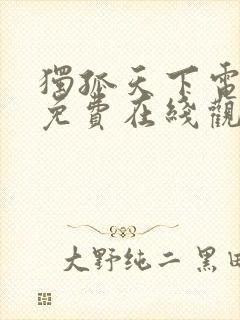 獨孤天下電
免費在綫觀
大野纯二 黑田